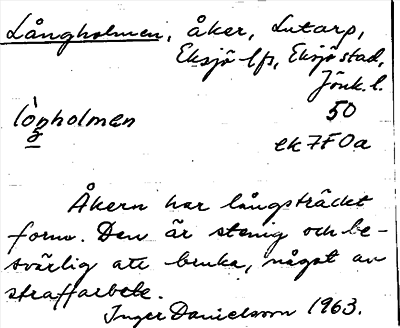 Långholmen, åker, Lutarp,
Eksjö lfs, Eksjö stad,
Jönk. l.
lò̀ŋholmen 50
2 ek 7F0a
Åkern har långsträckt
form. Den är stenig och be-
svärlig att bruka, något av
straffarbete.
Inger Danielsson 1963.